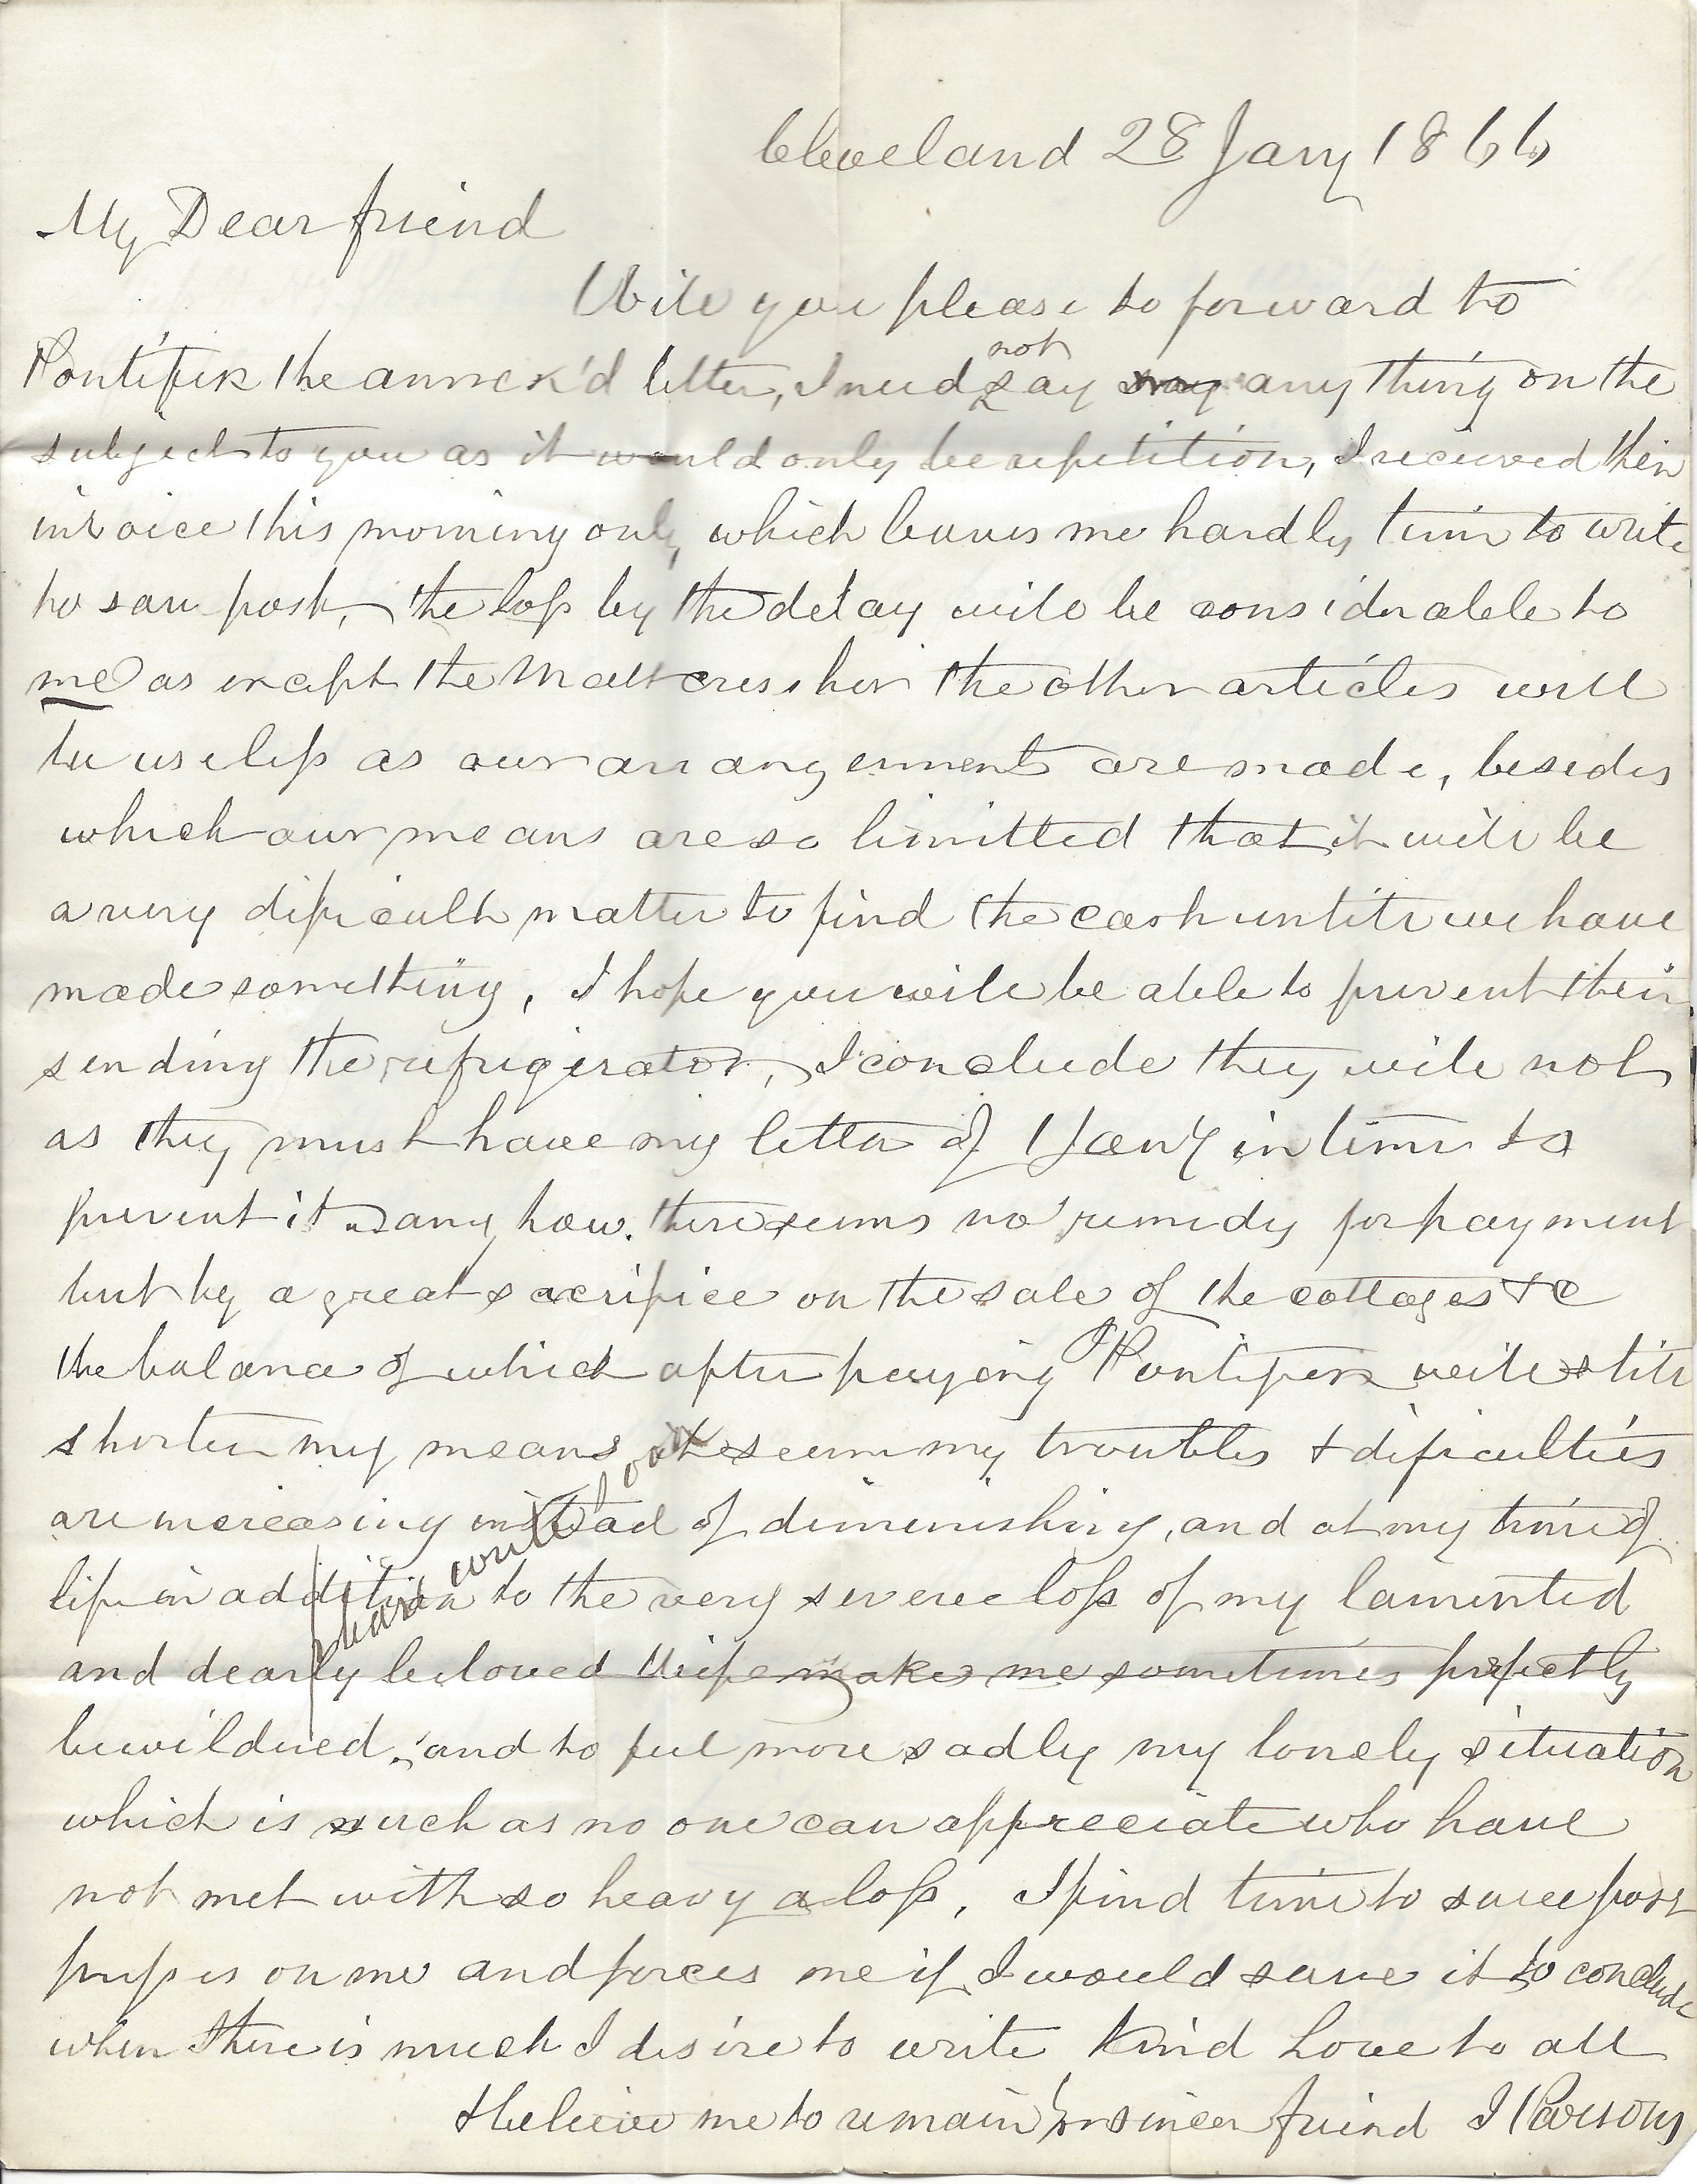 Cleveland 28 Jany 1866
My Dear friend
Will you please to forward to
Pontifex the annex'd letter, I need not say any thing on the
subject to you as it would only be repetition, I received their
invoice this morning only, which leaves me hardly time to write
to save post, the loss by the delay will be considerable to
me as except the Matt the other articles will
be useless as our arrangements are made, besides
which our means are so limitted that it will be
a very dificult matter to find the cash untill we have
made something, I hope you will be able to prevent their
sending the refrigerator, I conclude they will not
as they must have my letter of 1 Jany in time to
prevent it any how. there seems no remedy for payment
but by a great sacrifice on the sale of the cottages &c
the balance of which after paying Pontifex will still
shorten my means, it seem my troubles & dificulties
are increasing instead of diminishing, and at my time of
life in addition to the very severe loss of my lamented
and dearly beloved Wife makes me sometimes perfectly
bewildered, and to feel more sadly my lonely situation
which is such as no one can appreciate who have
not met with so heavy a loss, I find time to save post
presses on me and forces me if I would save it to conclude
when there is much I desire to write Kind Love to all
& believe me to remain yr sincer friend J Parsons
please write soon